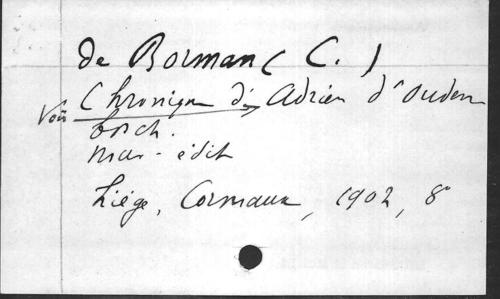 de Borman ( C. )
Voir Chronique d' Adrien d'Ouden
bosch.
nouv - édit
Liége, Cormaux, 1902, 8°